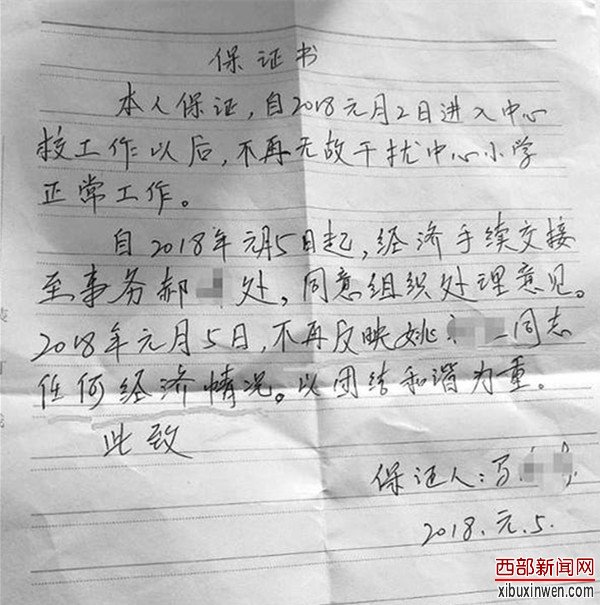 保证书
本人保证,自2018元月2日进入中心
校工作以后,不再无故干扰中心小学
正常工作。
自2018年元月5日起,经济手续交接
至事务郝 处,同意组织处理意见。
2018年元月5日,不再反映姚 同志
任何经济情况。以团结和谐为重。
此致
保证人:马
2018.元.5.
西部新闻网
xibuxinwen.com